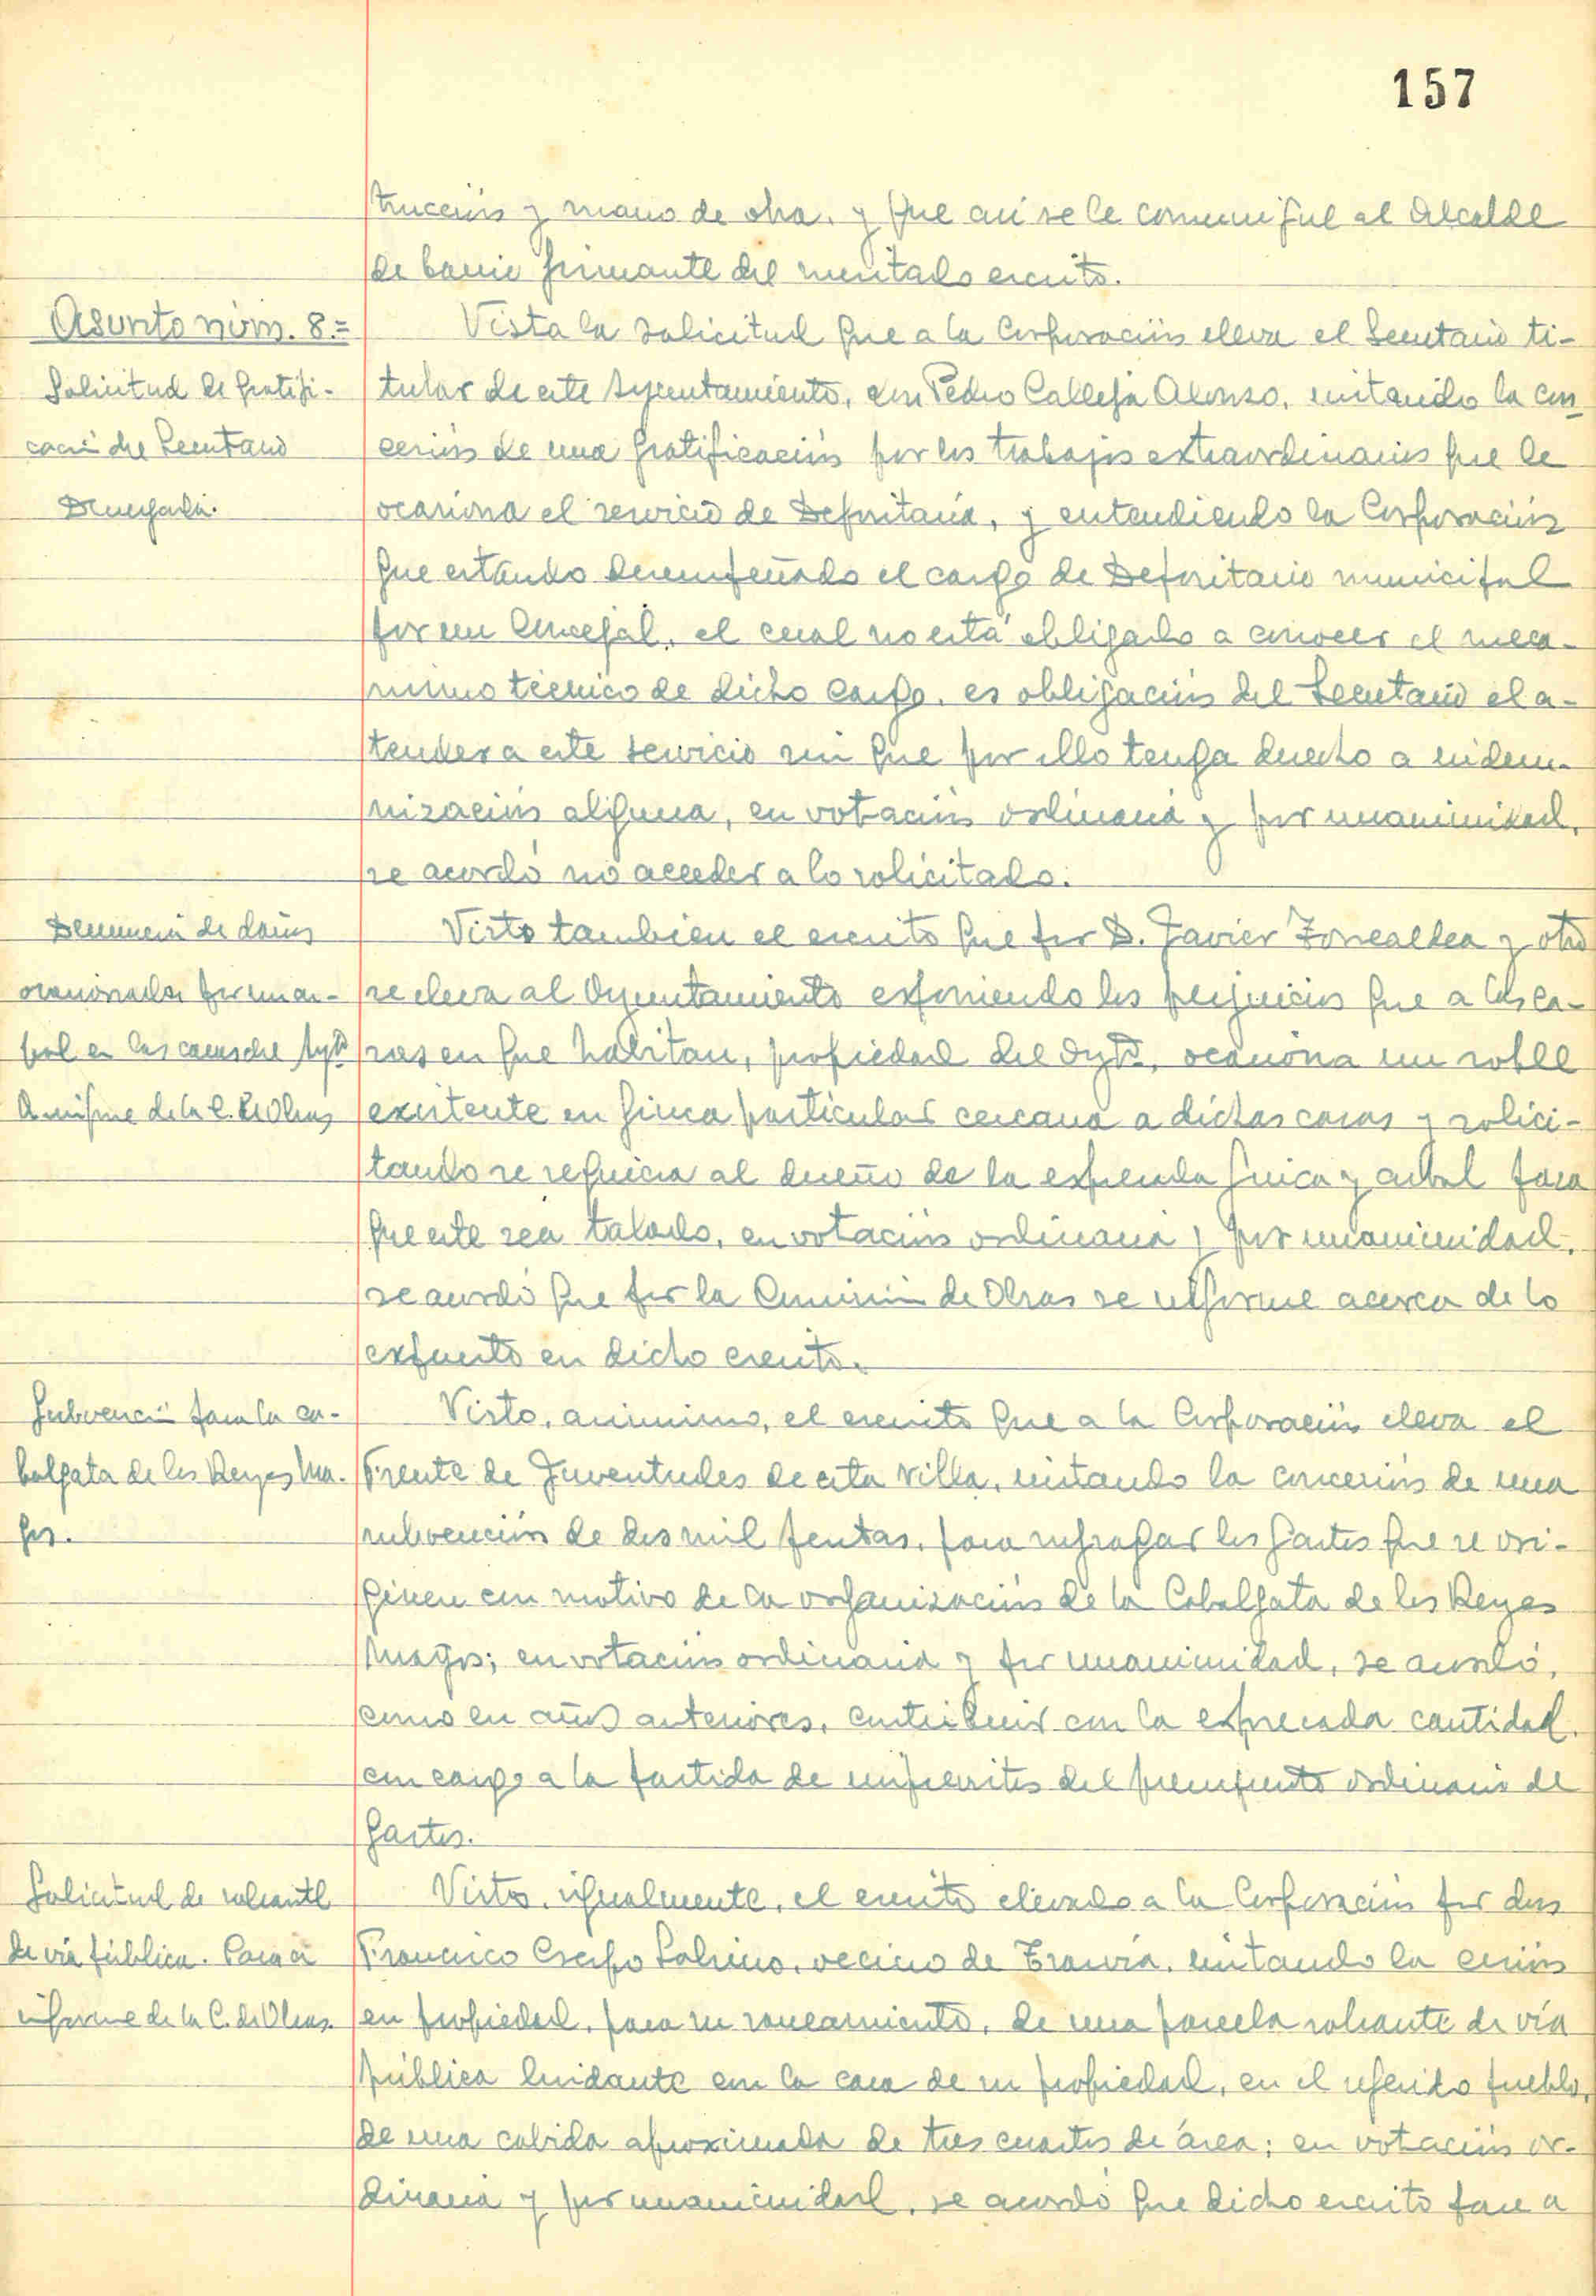 157
trucción y mano de obra, y que así se le comunique al Alcalde
de barrio firmante del mentado escrito.
Asunto núm. 8.=
Solicitud de gratifi-
cación del Secretario
Denegada.
Vista la solicitud que a la Corporación eleva el Secretario ti-
tular de este Ayuntamiento, don Pedro Calleja Alonso, instando la con-
cesión de una gratificación por los trabajos extraordinarios que le
ocasiona el servicio de Depositaría, y entendiendo la Corporación
que estando desempeñado el cargo de Depositario municipal
por un Concejal, el cual no está obligado a conocer el meca-
nismo técnico de dicho cargo, es obligación del Secretario el a-
tender a este servicio sin que por ello tenga derecho a indem-
nización alguna, en votación ordinaria y por unanimidad,
se acordó no acceder a lo solicitado.
Denuncia de daños
ocasionados por un ár-
bol en las casas del Aytº
A informe de la C. de Obras
Visto también el escrito que por D. Javier Zorrealdea y otro
se eleva al Ayuntamiento exponiendo los perjuicios que a las ca-
sas en que habitan, propiedad del Aytº, ocasiona un roble
existente en finca particular cercana a dichas casas y solici-
tando se requiera al dueño de la expresada finca y árbol para
que este sea talado, en votación ordinaria y por unanimidad,
se acordó que por la Comisión de Obras se informe acerca de lo
expuesto en dicho escrito.
Subvención para la ca-
balgata de los Reyes Ma-
gos.
Visto, asimismo, el escrito que a la Corporación eleva el
Frente de Juventudes de esta villa, instando la concesión de una
subvención de dos mil pesetas, para sufragar los gastos que se ori-
ginen con motivo de la organización de la Cabalgata de los Reyes
Magos; en votación ordinaria y por unanimidad, se acordó,
como en años anteriores, contribuir con la expresada cantidad,
con cargo a la partida de imprevistos del presupuesto ordinario de
gastos.
Solicitud de sobrante
de vía pública. Pasa a
informe de la C. de Obras.
Visto, igualmente, el escrito elevado a la Corporación por don
Francisco Crespo Sabino, vecino de Eranvía, instando la cesión
en propiedad, para su saneamiento, de una parcela sobrante de vía
pública lindante con la casa de su propiedad, en el referido pueblo,
de una cabida aproximada de tres cuartos de área; en votación or-
dinaria y por unanimidad, se acordó que dicho escrito pase a